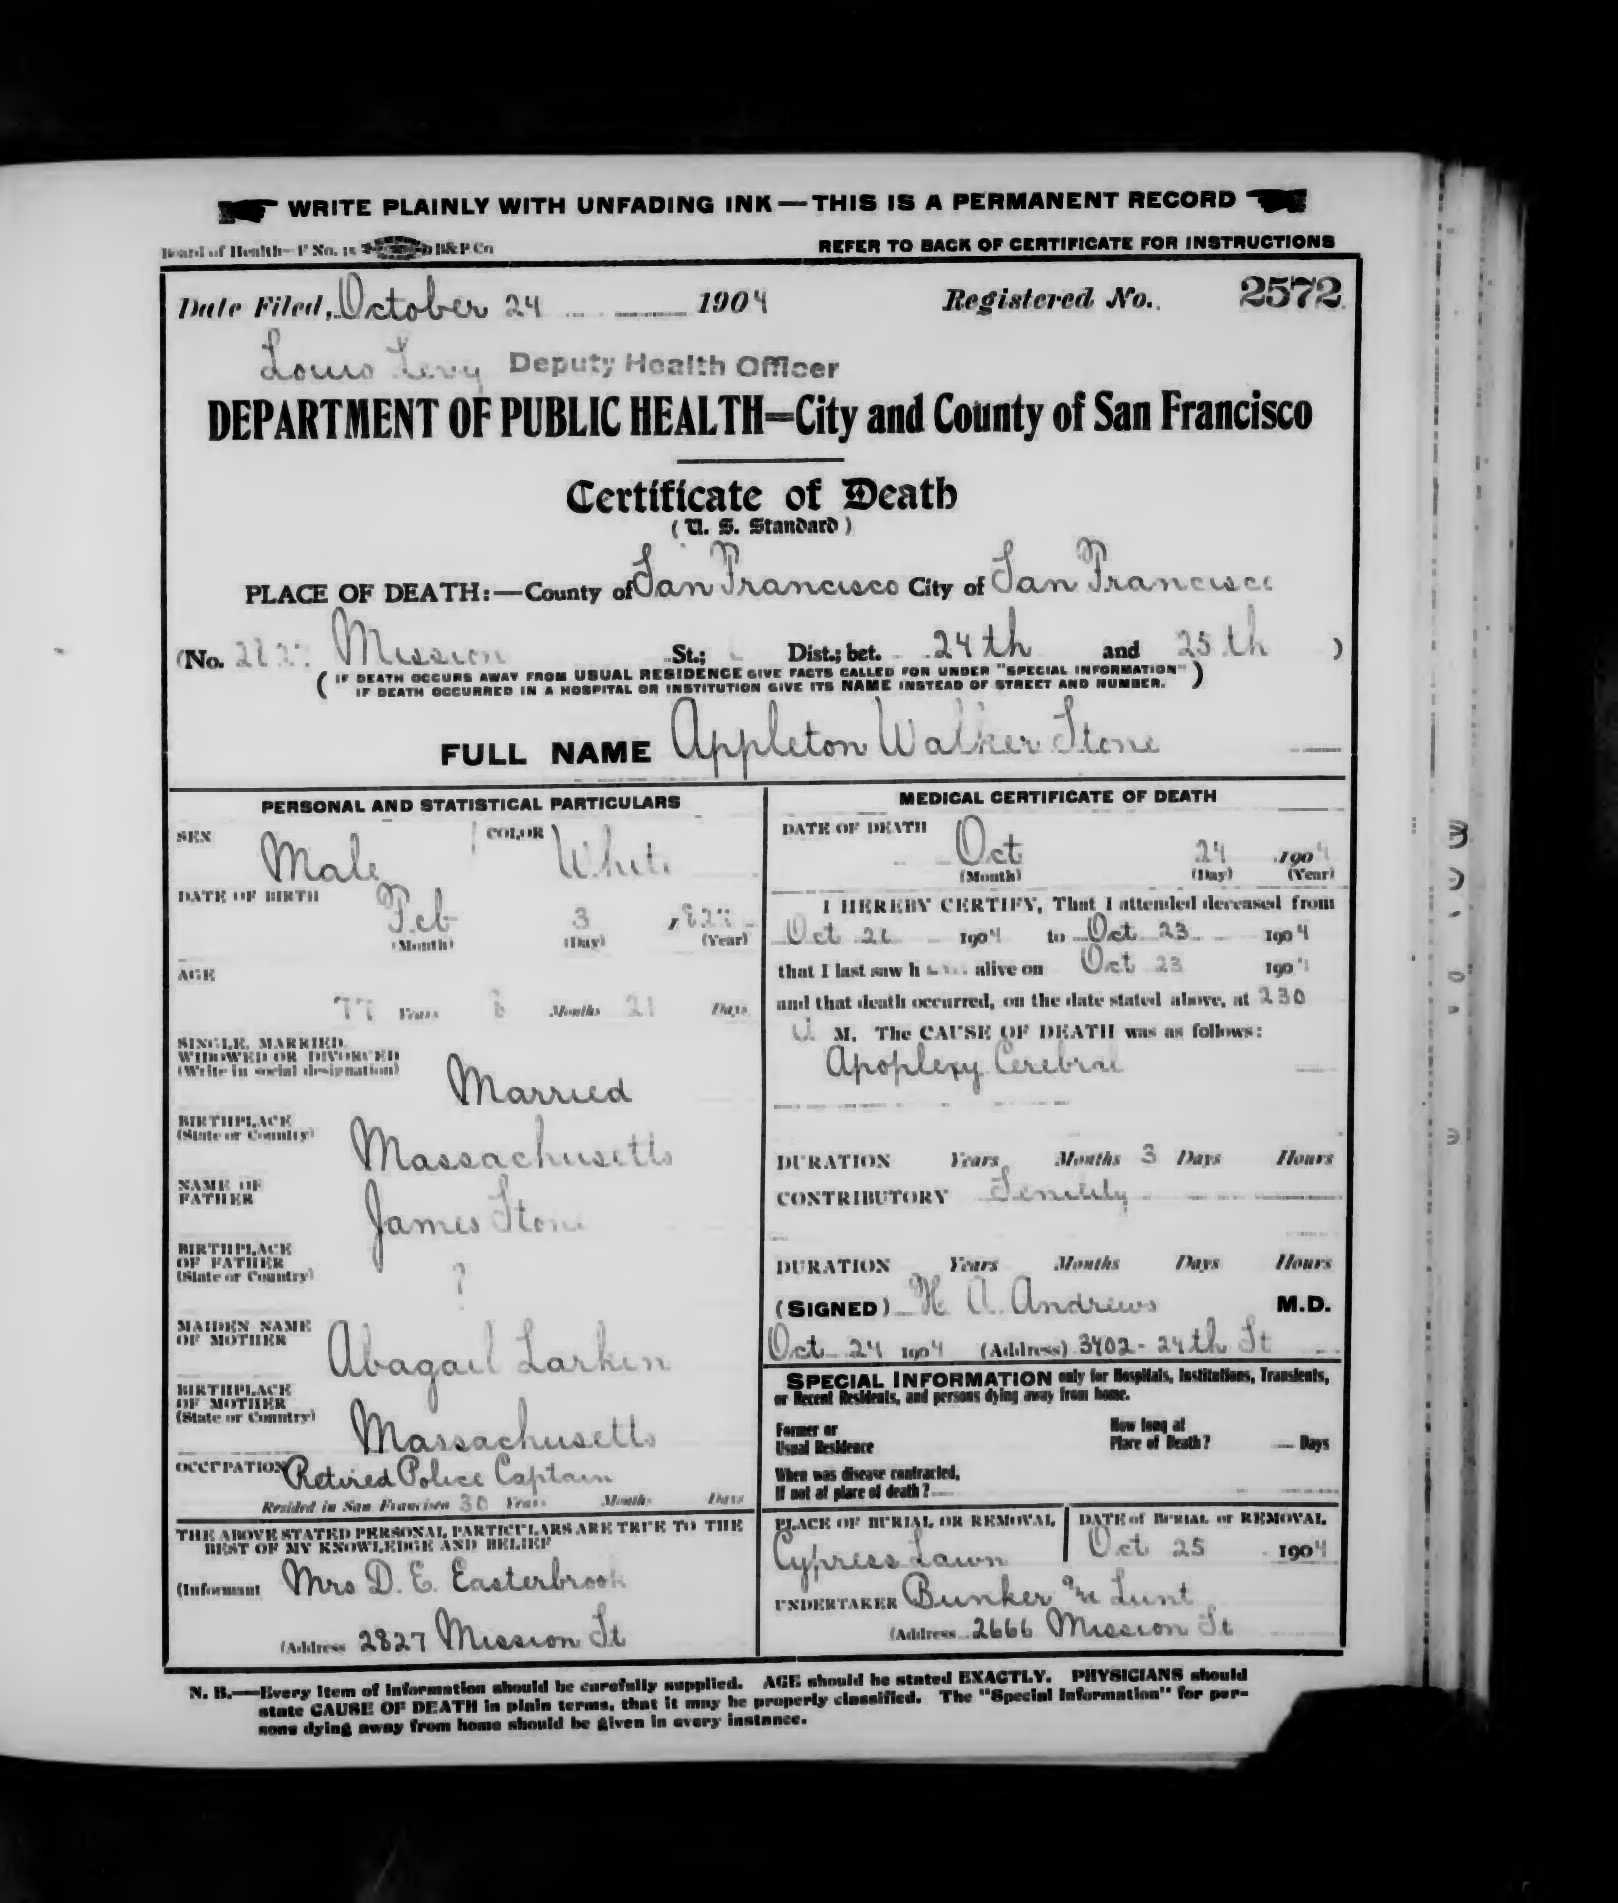 WRITE PLAINLY WITH UNFADING INK — THIS IS A PERMANENT RECORD
Board of Health—F No. 15 B&P Co
REFER TO BACK OF CERTIFICATE FOR INSTRUCTIONS
Date Filed, October 24 1904 Registered No. 2572
Louis Levy Deputy Health Officer
DEPARTMENT OF PUBLIC HEALTH=City and County of San Francisco
Certificate of Death
(U. S. Standard)
PLACE OF DEATH:—County of San Francisco City of San Francisco
(No. Mission St.; Dist.; bet. 24th and 25th )
( IF DEATH OCCURS AWAY FROM USUAL RESIDENCE GIVE FACTS CALLED FOR UNDER "SPECIAL INFORMATION"
IF DEATH OCCURRED IN A HOSPITAL OR INSTITUTION GIVE ITS NAME INSTEAD OF STREET AND NUMBER. )
FULL NAME Appleton Walker Stone
PERSONAL AND STATISTICAL PARTICULARS
SEX Male COLOR White
DATE OF BIRTH Feb 3
(Month) (Day) (Year)
AGE
77 Years 8 Months 21 Days
SINGLE, MARRIED,
WIDOWED OR DIVORCED
(Write in social designation)
Married
BIRTHPLACE
(State or Country)
Massachusetts
NAME OF
FATHER
James Stone
BIRTHPLACE
OF FATHER
(State or Country)
?
MAIDEN NAME
OF MOTHER
Abagail Larkin
BIRTHPLACE
OF MOTHER
(State or Country)
Massachusetts
OCCUPATION Retired Police Captain
Resided in San Francisco 30 Years Months Days
THE ABOVE STATED PERSONAL PARTICULARS ARE TRUE TO THE
BEST OF MY KNOWLEDGE AND BELIEF
(Informant Mrs D. E. Easterbrook
(Address 2827 Mission St
MEDICAL CERTIFICATE OF DEATH
DATE OF DEATH
Oct 24 1904
(Month) (Day) (Year)
I HEREBY CERTIFY, That I attended deceased from
Oct 21 1904 to Oct 23 1904
that I last saw h alive on Oct 23 1904
and that death occurred, on the date stated above, at 230
M. The CAUSE OF DEATH was as follows:
Apoplexy Cerebral
DURATION Years Months 3 Days Hours
CONTRIBUTORY Senility
DURATION Years Months Days Hours
(SIGNED) H. A. Andrews M.D.
Oct 24 1904 (Address) 3402 - 24th St
SPECIAL INFORMATION only for Hospitals, Institutions, Transients,
or Recent Residents, and persons dying away from home.
Former or
Usual Residence
How long at
Place of Death? Days
When was disease contracted,
If not at place of death?
PLACE OF BURIAL OR REMOVAL
Cypress Lawn
DATE of BURIAL or REMOVAL
Oct 25 1904
UNDERTAKER Bunker & Lunt
(Address 2666 Mission St
N. B.—Every item of information should be carefully supplied. AGE should be stated EXACTLY. PHYSICIANS should
state CAUSE OF DEATH in plain terms, that it may be properly classified. The "Special Information" for per-
sons dying away from home should be given in every instance.